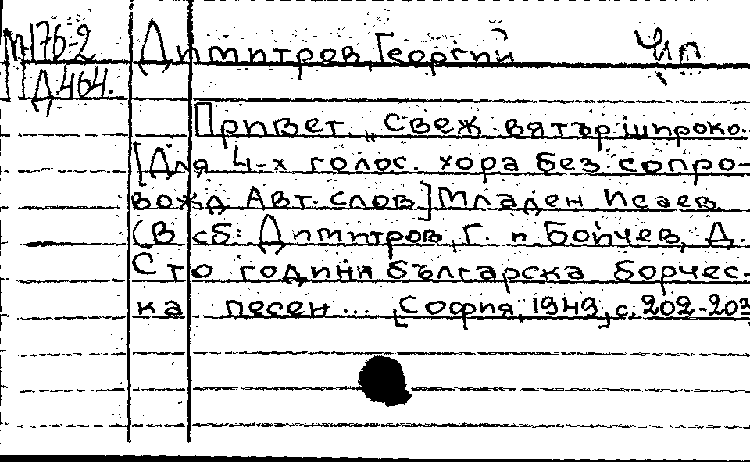 М176-2 Димитров, Георгий
Д464.
Привет. „Свеж вятър широко.
[Для 4-х голос. хора без сопро-
вожд Авт. слов] Младен Исаев
(В сб: Димитров, Г. и Бойчев, Д.
Сто години българска борчес-
ка песен... [София, 1949, с. 202-203